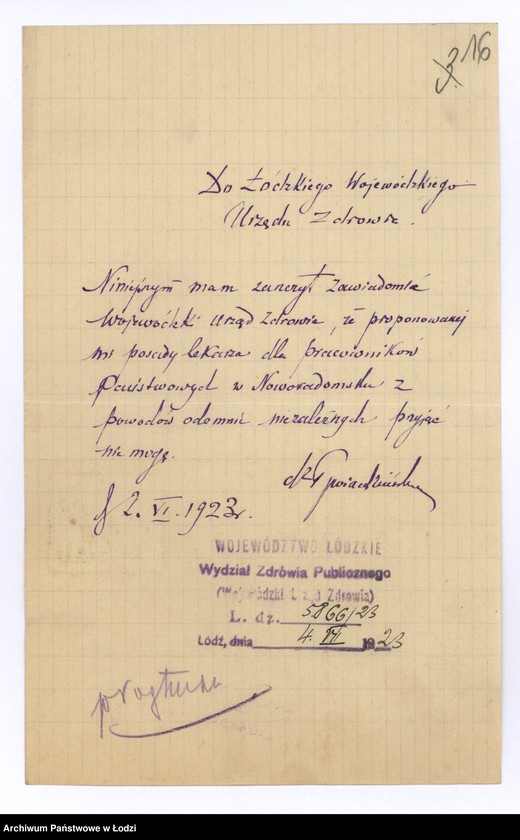 3. 16
Do Łódzkiego Wojewódzkiego
Urzędu Zdrowia.
Niniejszym mam zaszczyt zawiadomić
Wojewódzki Urząd Zdrowia, że proponowanej
mi posady lekarza dla pracowników
Państwowych w Noworadomsku z
powodów odemnie niezależnych przyjąć
nie mogę.
2. VI. 1923r.
WOJEWÓDZTWO ŁÓDZKIE
Wydział Zdrówia Publicznego
(Wojewódzki Urząd Zdrowia)
L. dz. 5866/23
Łódź, dnia 4. VII 1923
Archiwum Państwowe w Łodzi